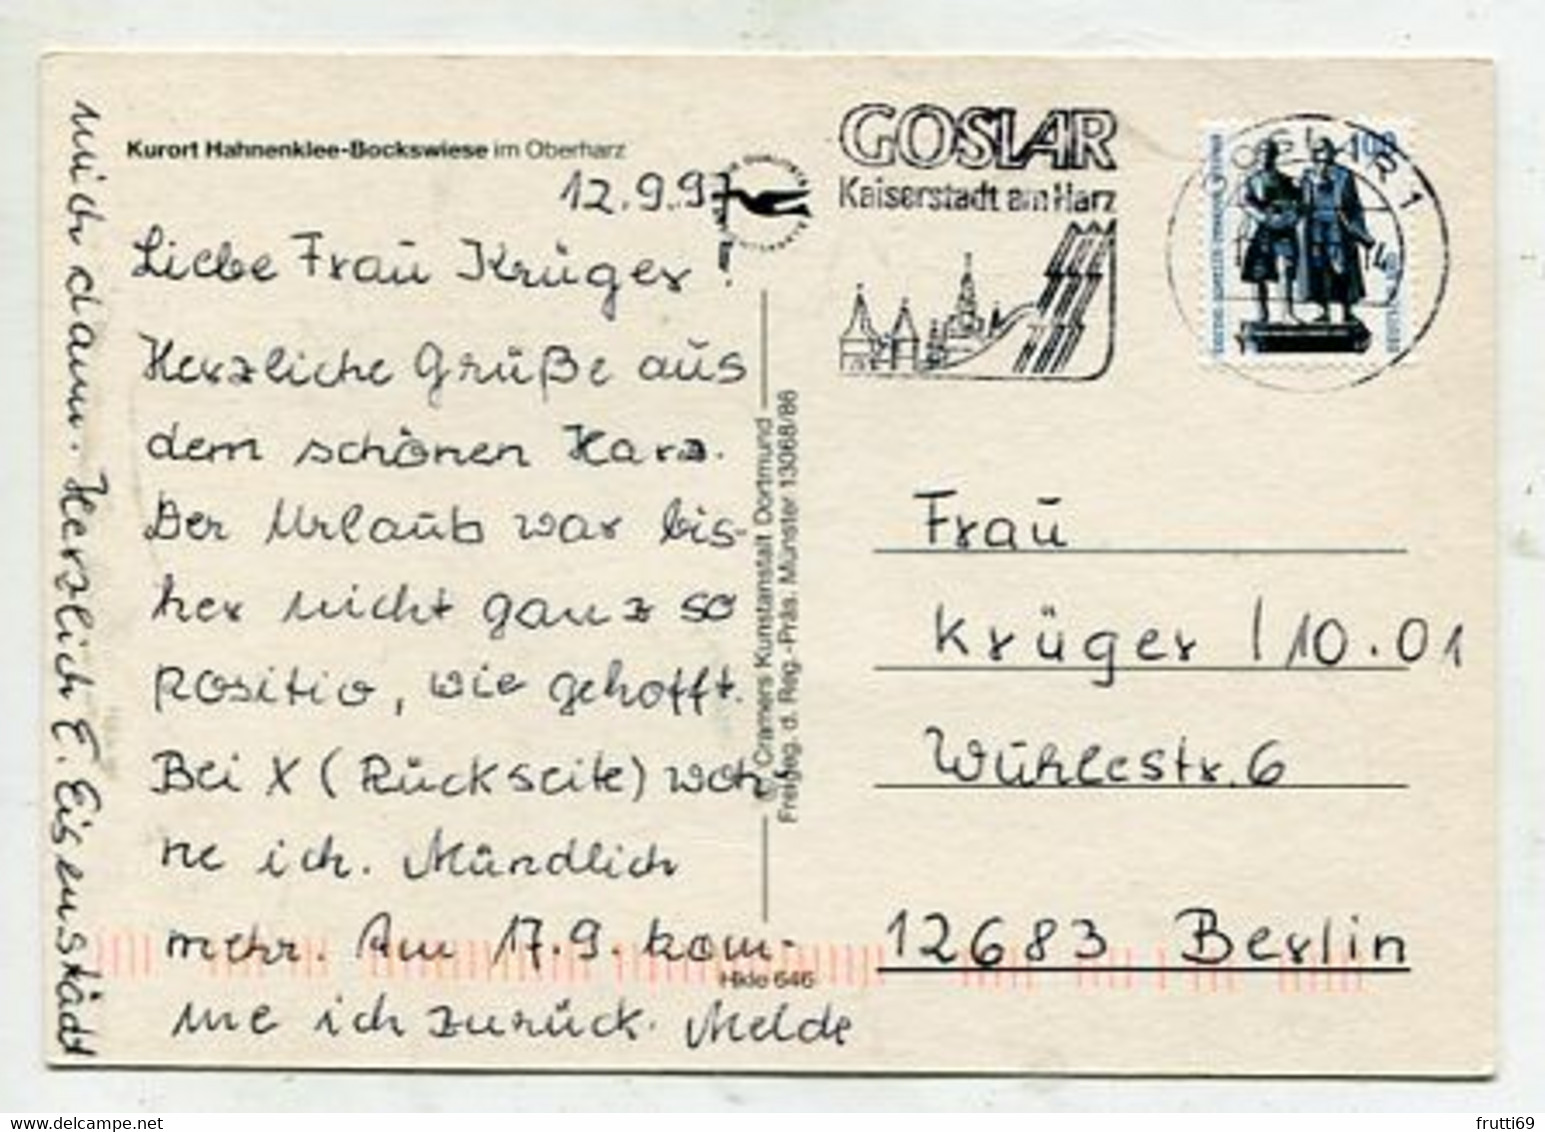 Kurort Hahnenklee-Bockswiese im Oberharz
12.9.97
Liebe Frau Krüger!
Herzliche Grüße aus
dem schönen Harz.
Der Urlaub war bis-
her nicht ganz so
positiv, wie gehofft.
Bei X (Rückseite) woh
ne ich. Mündlich
mehr. Am 17.9. kom-
me ich zurück. Melde
mich dann. Herzlich E. Eisenstädt
Cramers Kunstanstalt Dortmund
Freigeg. d. Reg.-Präs. Münster 13068/86
Hkle 646
GOSLAR
Kaiserstadt am Harz
100
Frau
Krüger / 10.01
Wühlestr. 6
12683 Berlin
frutti69